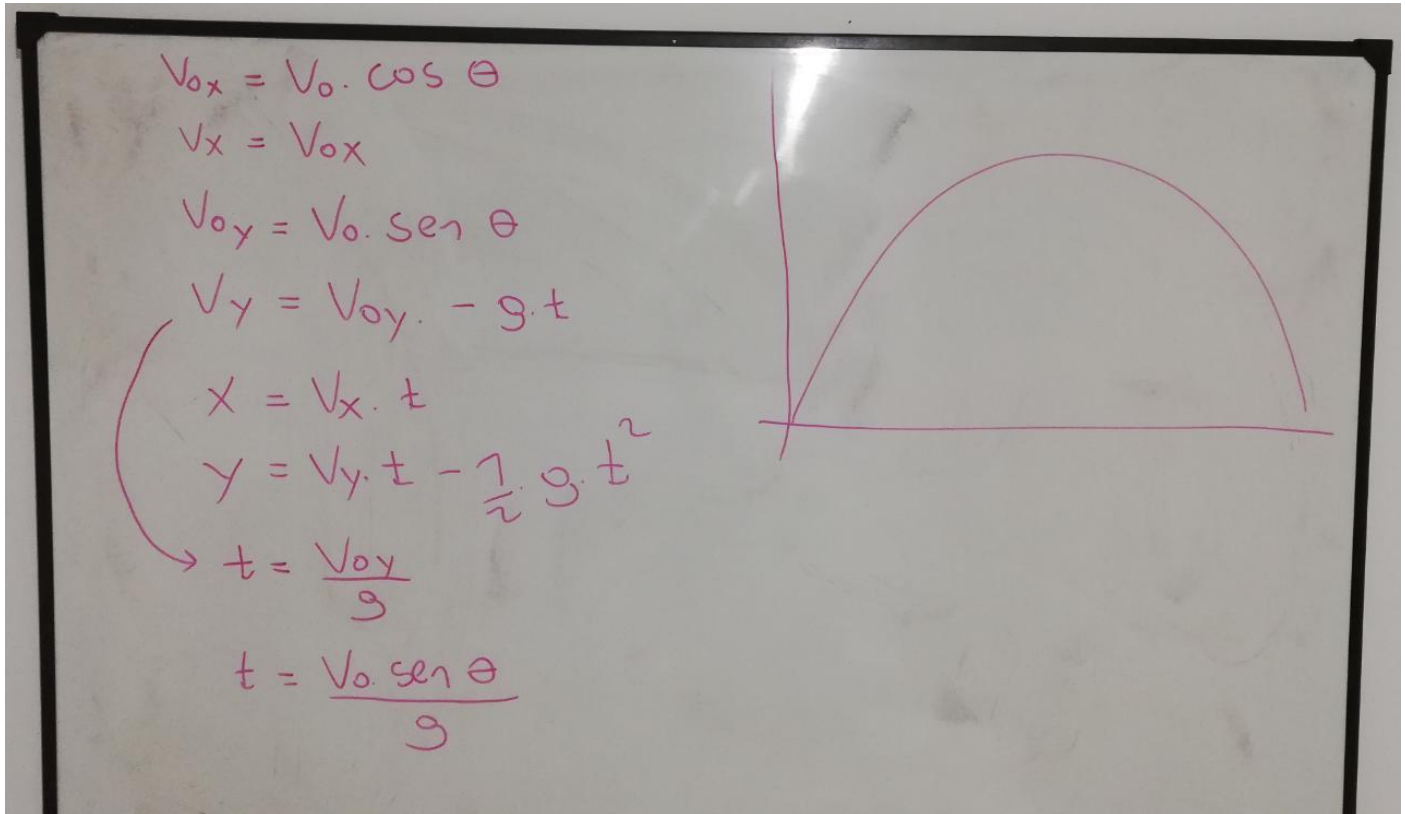 Vox = Vo. cos θ
Vx = Vox
Voy = Vo. sen θ
Vy = Voy. - g.t
X = Vx. t
y = Vy. t - 1/2. g. t²
t = Voy/g
t = Vo. sen θ/g